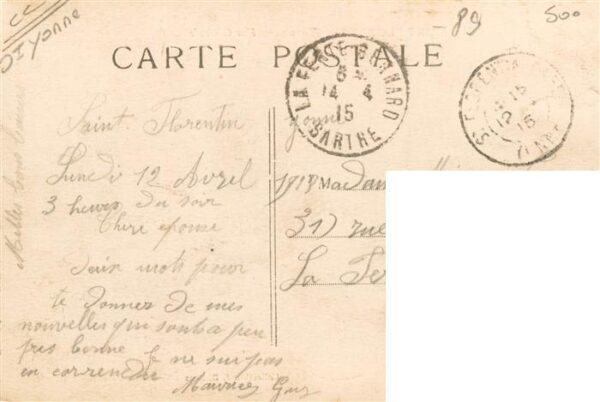 - 89
500
Dyonne
CARTE POSTALE
LA FERTÉ-BERNARD
6
14 - 4
15
SARTHE
15
12 - 4
15
YONNE
Saint Florentin
Yonne
Lundi 12 Avril
3 heures du soir
Chere epouse
deux mots pour
te donner de mes
nouvelles qui sont a peu
pres bonne je ne suis pas
en
Maurice
Milles bons baisers
Madam
31 rue
La Fer